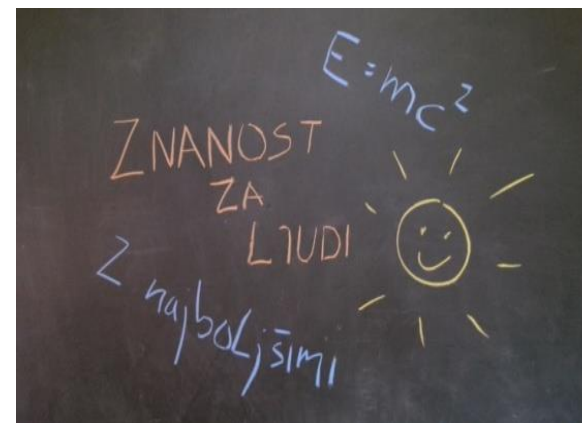 E=mc²
ZNANOST
ZA
LJUDI
Z najboljšimi